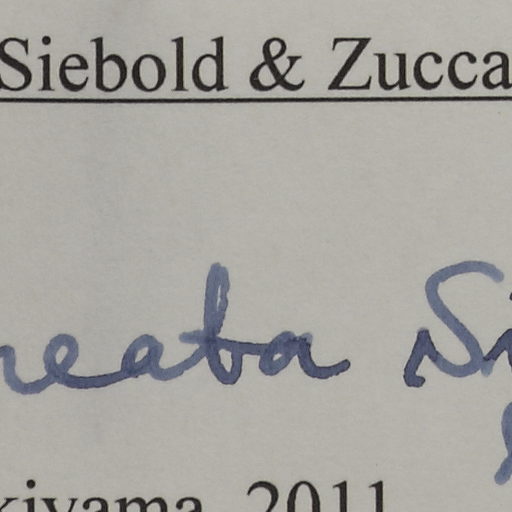 Siebold & Zucca
neata Si
kiyama, 2011